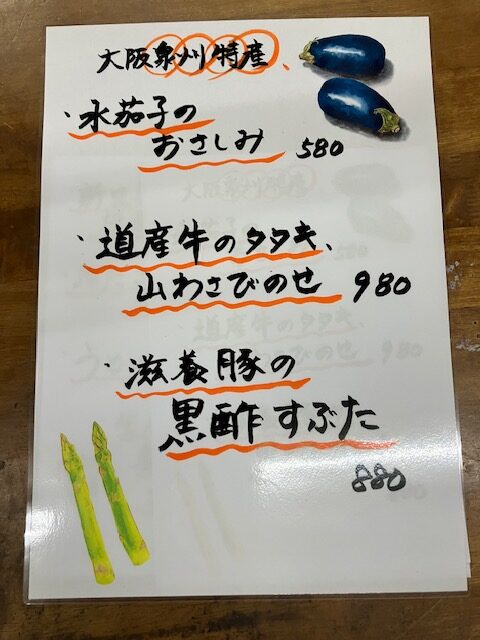 大阪泉州特産、
・水茄子の
おさしみ 580
・道産牛のタタキ、
山わさびのせ 980
・滋養豚の
黒酢すぶた
880